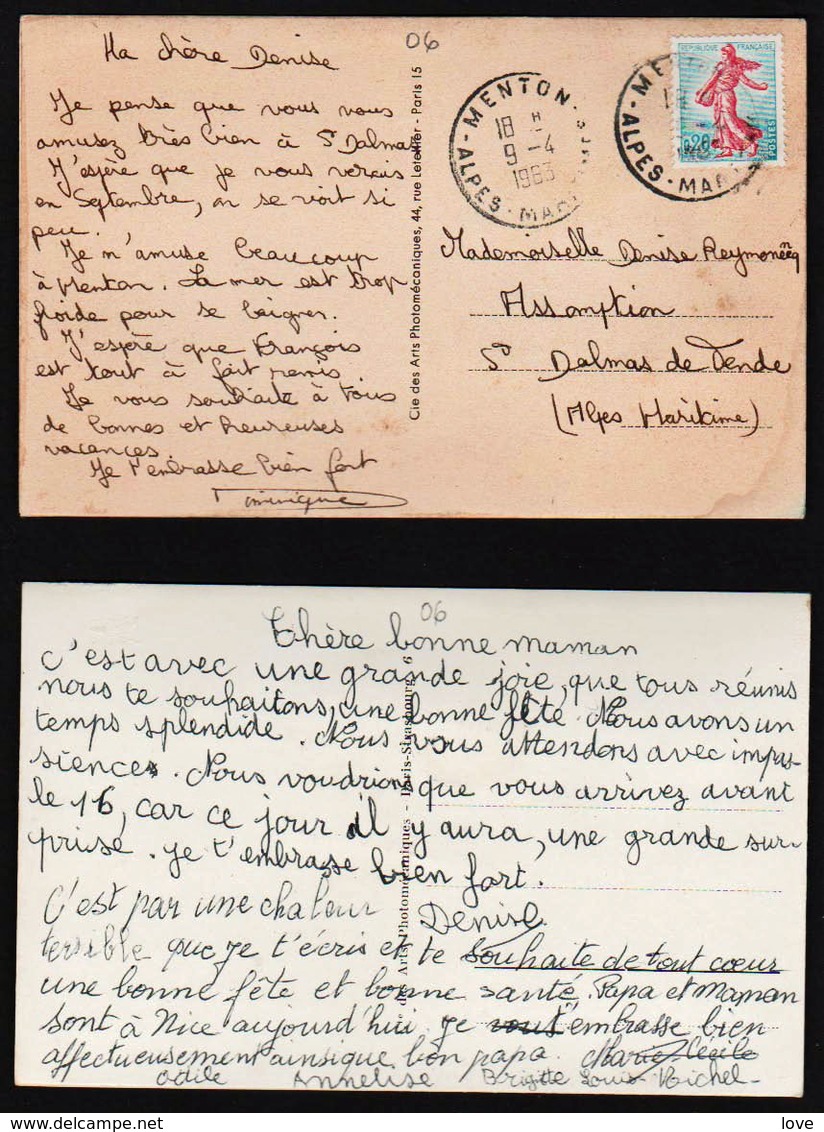 06
Ma chère Denise
Je pense que vous vous
amusez très bien à St Dalmas
J'espère que je vous verais
en Septembre, on se voit si
peu.
Je m'amuse beaucoup
à Menton. La mer est trop
froide pour se baigner.
J'espère que François
est tout à fait remis
Je vous souhaite à tous
de bonnes et heureuses
vacances.
Je t'embrasse bien fort
Dominique
Cie des Arts Photomécaniques, 44, rue Letellier - Paris 15
MENTON
18 H
9 - 4
1963
ALPES - MAR
REPUBLIQUE FRANÇAISE
0,20
POSTES
MENT
ALPES - MAR
Mademoiselle Denise Reymonenq
Assomption
St Dalmas de Tende
(Alpes Maritime)
06
Chère bonne maman
C'est avec une grande joie, que tous réunis
nous te souhaitons, une bonne fête. Nous avons un
temps splendide. Nous vous attendons avec impas-
siences. Nous voudrions que vous arrivez avant
le 16, car ce jour il y aura, une grande sur-
prise. je t'embrasse bien fort.
Denise
C'est par une chaleur
terrible que je t'écris et te souhaite de tout cœur
une bonne fête et bonne santé. Papa et Maman
sont à Nice aujourd'hui je vous t'embrasse bien
affectueusement ainsique bon papa. Marie-Cécile
Odile Annelise Brigitte Louis-Michel-
Arts Photomécaniques - Paris-Strasbourg 6
love